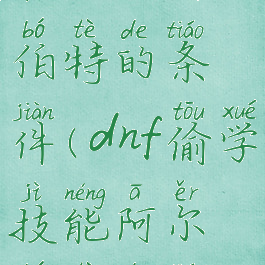 bó tè de tiáo
伯特的条
jiàn tōu xué
件(dnf偷学
jì néng ā ěr
技能阿尔